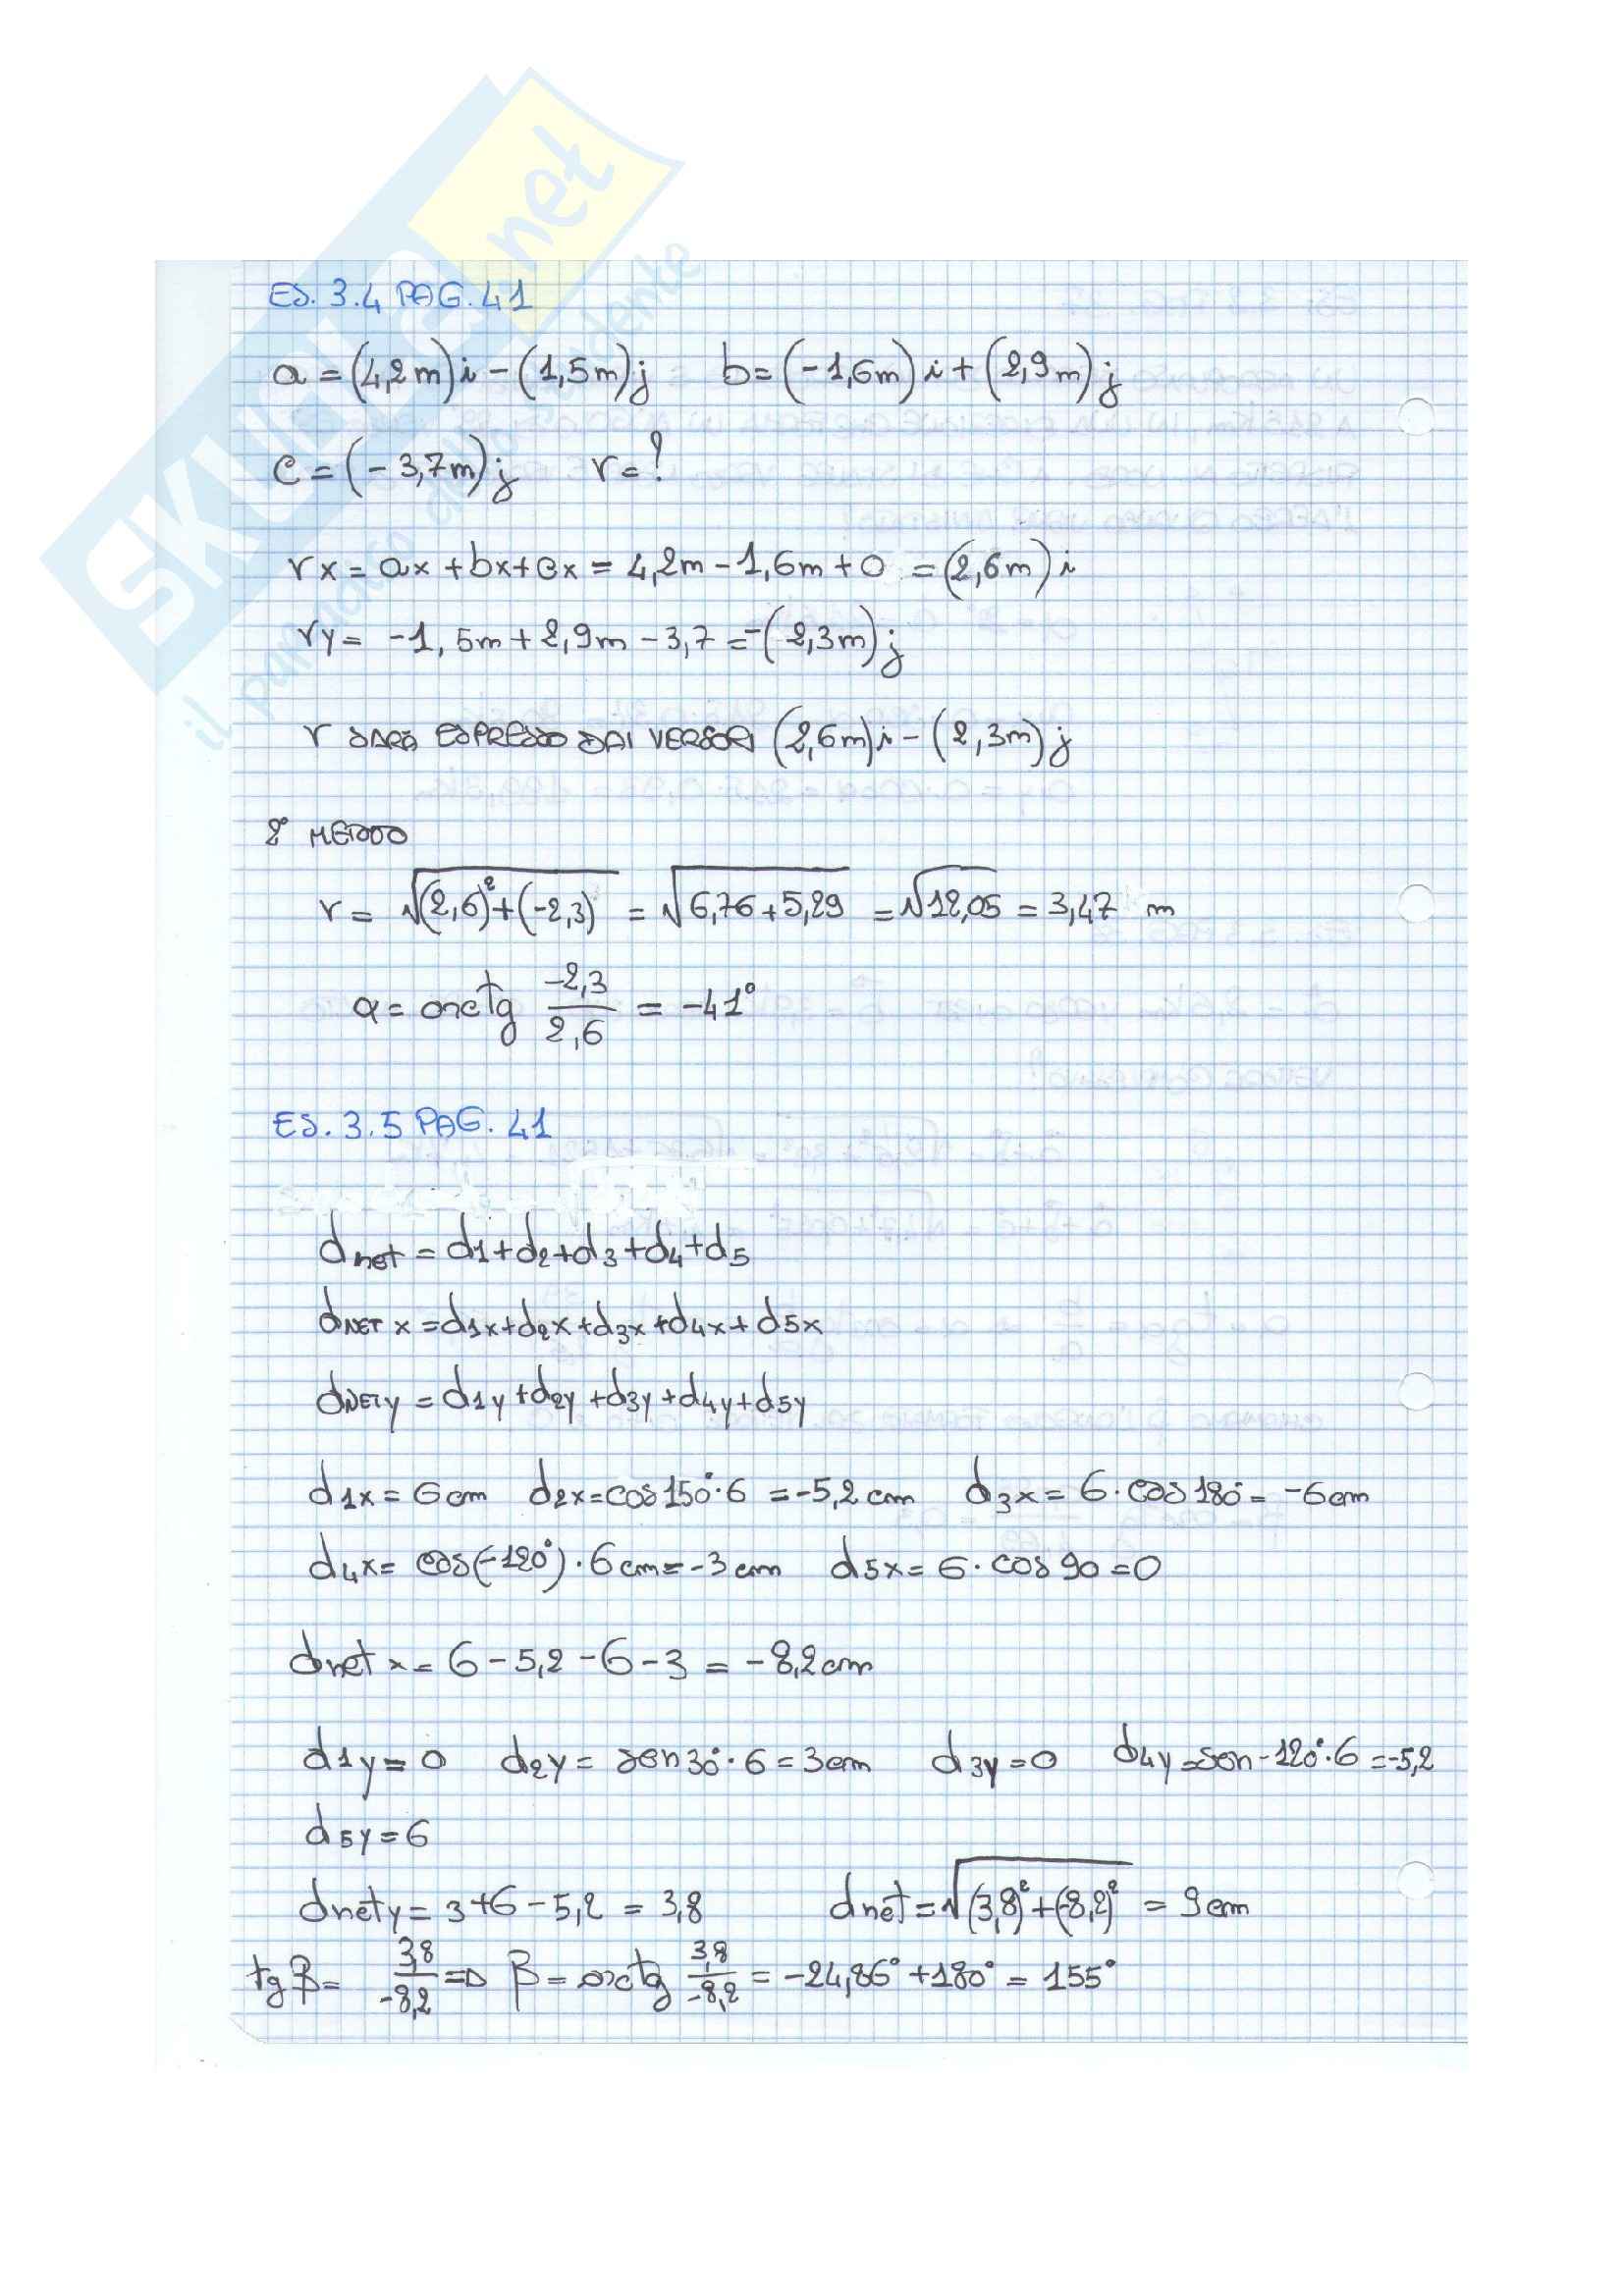 SKUOLA.net
il paradiso dello studente
ES. 3.4 PAG. 41
a = (4,2m)i - (1,5m)j b = (-1,6m)i + (2,9m)j
c = (-3,7m)j r = ?
rx = ax + bx + cx = 4,2m - 1,6m + 0 = (2,6m)i
ry = -1,5m + 2,9m - 3,7 = -(2,3m)j
r SARÀ ESPRESSO DAI VERSORI (2,6m)i - (2,3m)j
2° METODO
r = √(2,6)² + (-2,3) = √6,76 + 5,29 = √12,05 = 3,47 m
α = arctg -2,3/2,6 = -41°
ES. 3.5 PAG. 41
dnet = d1 + d2 + d3 + d4 + d5
dNET x = d1x + d2x + d3x + d4x + d5x
dNETy = d1y + d2y + d3y + d4y + d5y
d1x = 6cm d2x = cos150°·6 = -5,2cm d3x = 6·cos180° = -6cm
d4x = cos(-120°)·6cm = -3cm d5x = 6·cos90 = 0
dnet x = 6 - 5,2 - 6 - 3 = -8,2cm
d1y = 0 d2y = sen30°·6 = 3cm d3y = 0 d4y = sen-120°·6 = -5,2
d5y = 6
dnety = 3 + 6 - 5,2 = 3,8 dnet = √(3,8)² + (-8,2)² = 9cm
tgβ = 3,8/-8,2 => β = arctg 3,8/-8,2 = -24,86° + 180° = 155°